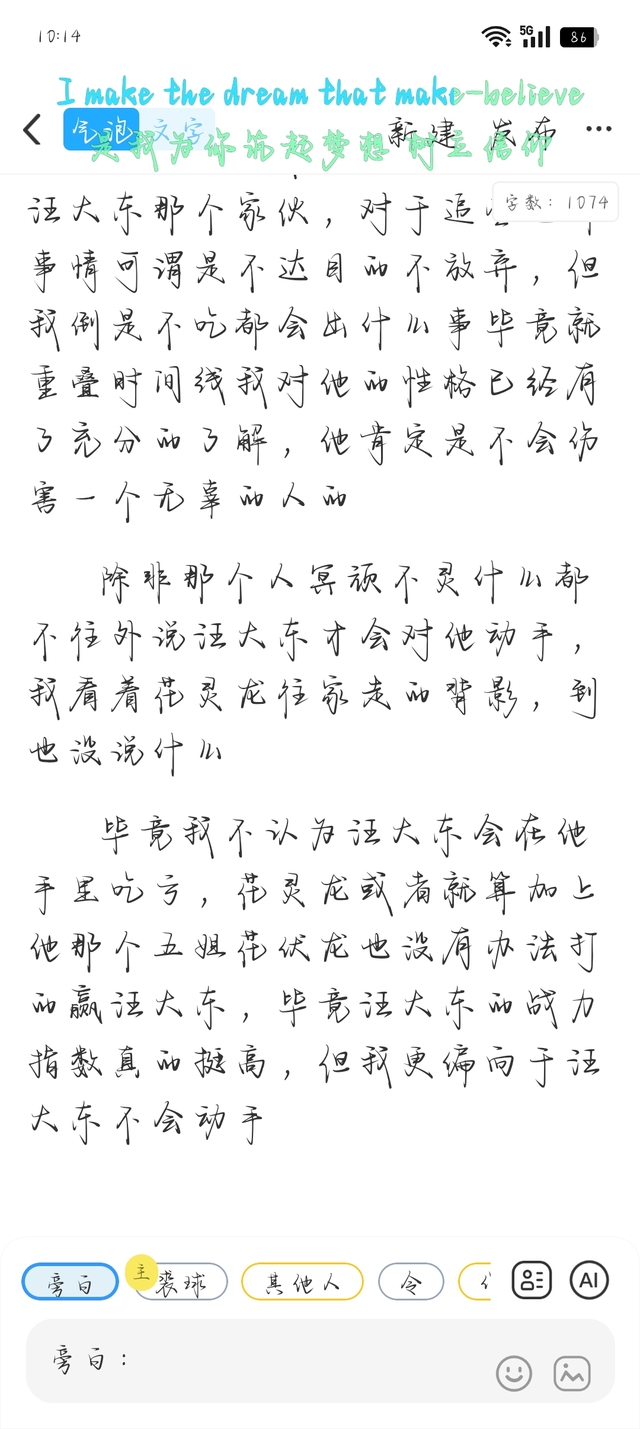 10:14
5G
86
I make the dream that make-believe
是我为你筑起梦想 树立信仰
气泡 文字
新建 发布
字数：1074
汪大东那个家伙，对于追
事情可谓是不达目的不放弃，但
我倒是不吃都会出什么事毕竟就
重叠时间线我对他的性格已经有
了充分的了解，他肯定是不会伤
害一个无辜的人的
除非那个人冥顽不灵什么都
不往外说汪大东才会对他动手，
我看着花灵龙往家走的背影，到
也没说什么
毕竟我不认为汪大东会在他
手里吃亏，花灵龙或者就算加上
他那个五姐花伏龙也没有办法打
的赢汪大东，毕竟汪大东的战力
指数真的挺高，但我更偏向于汪
大东不会动手
旁白
主
裘球
其他人
令
AI
旁白：